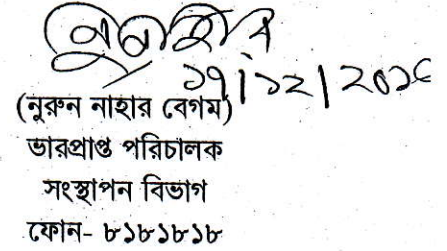 ১৭/১২/২০১৫
(নুরুন নাহার বেগম)
ভারপ্রাপ্ত পরিচালক
সংস্থাপন বিভাগ
ফোন- ৮১৮১৮১৮